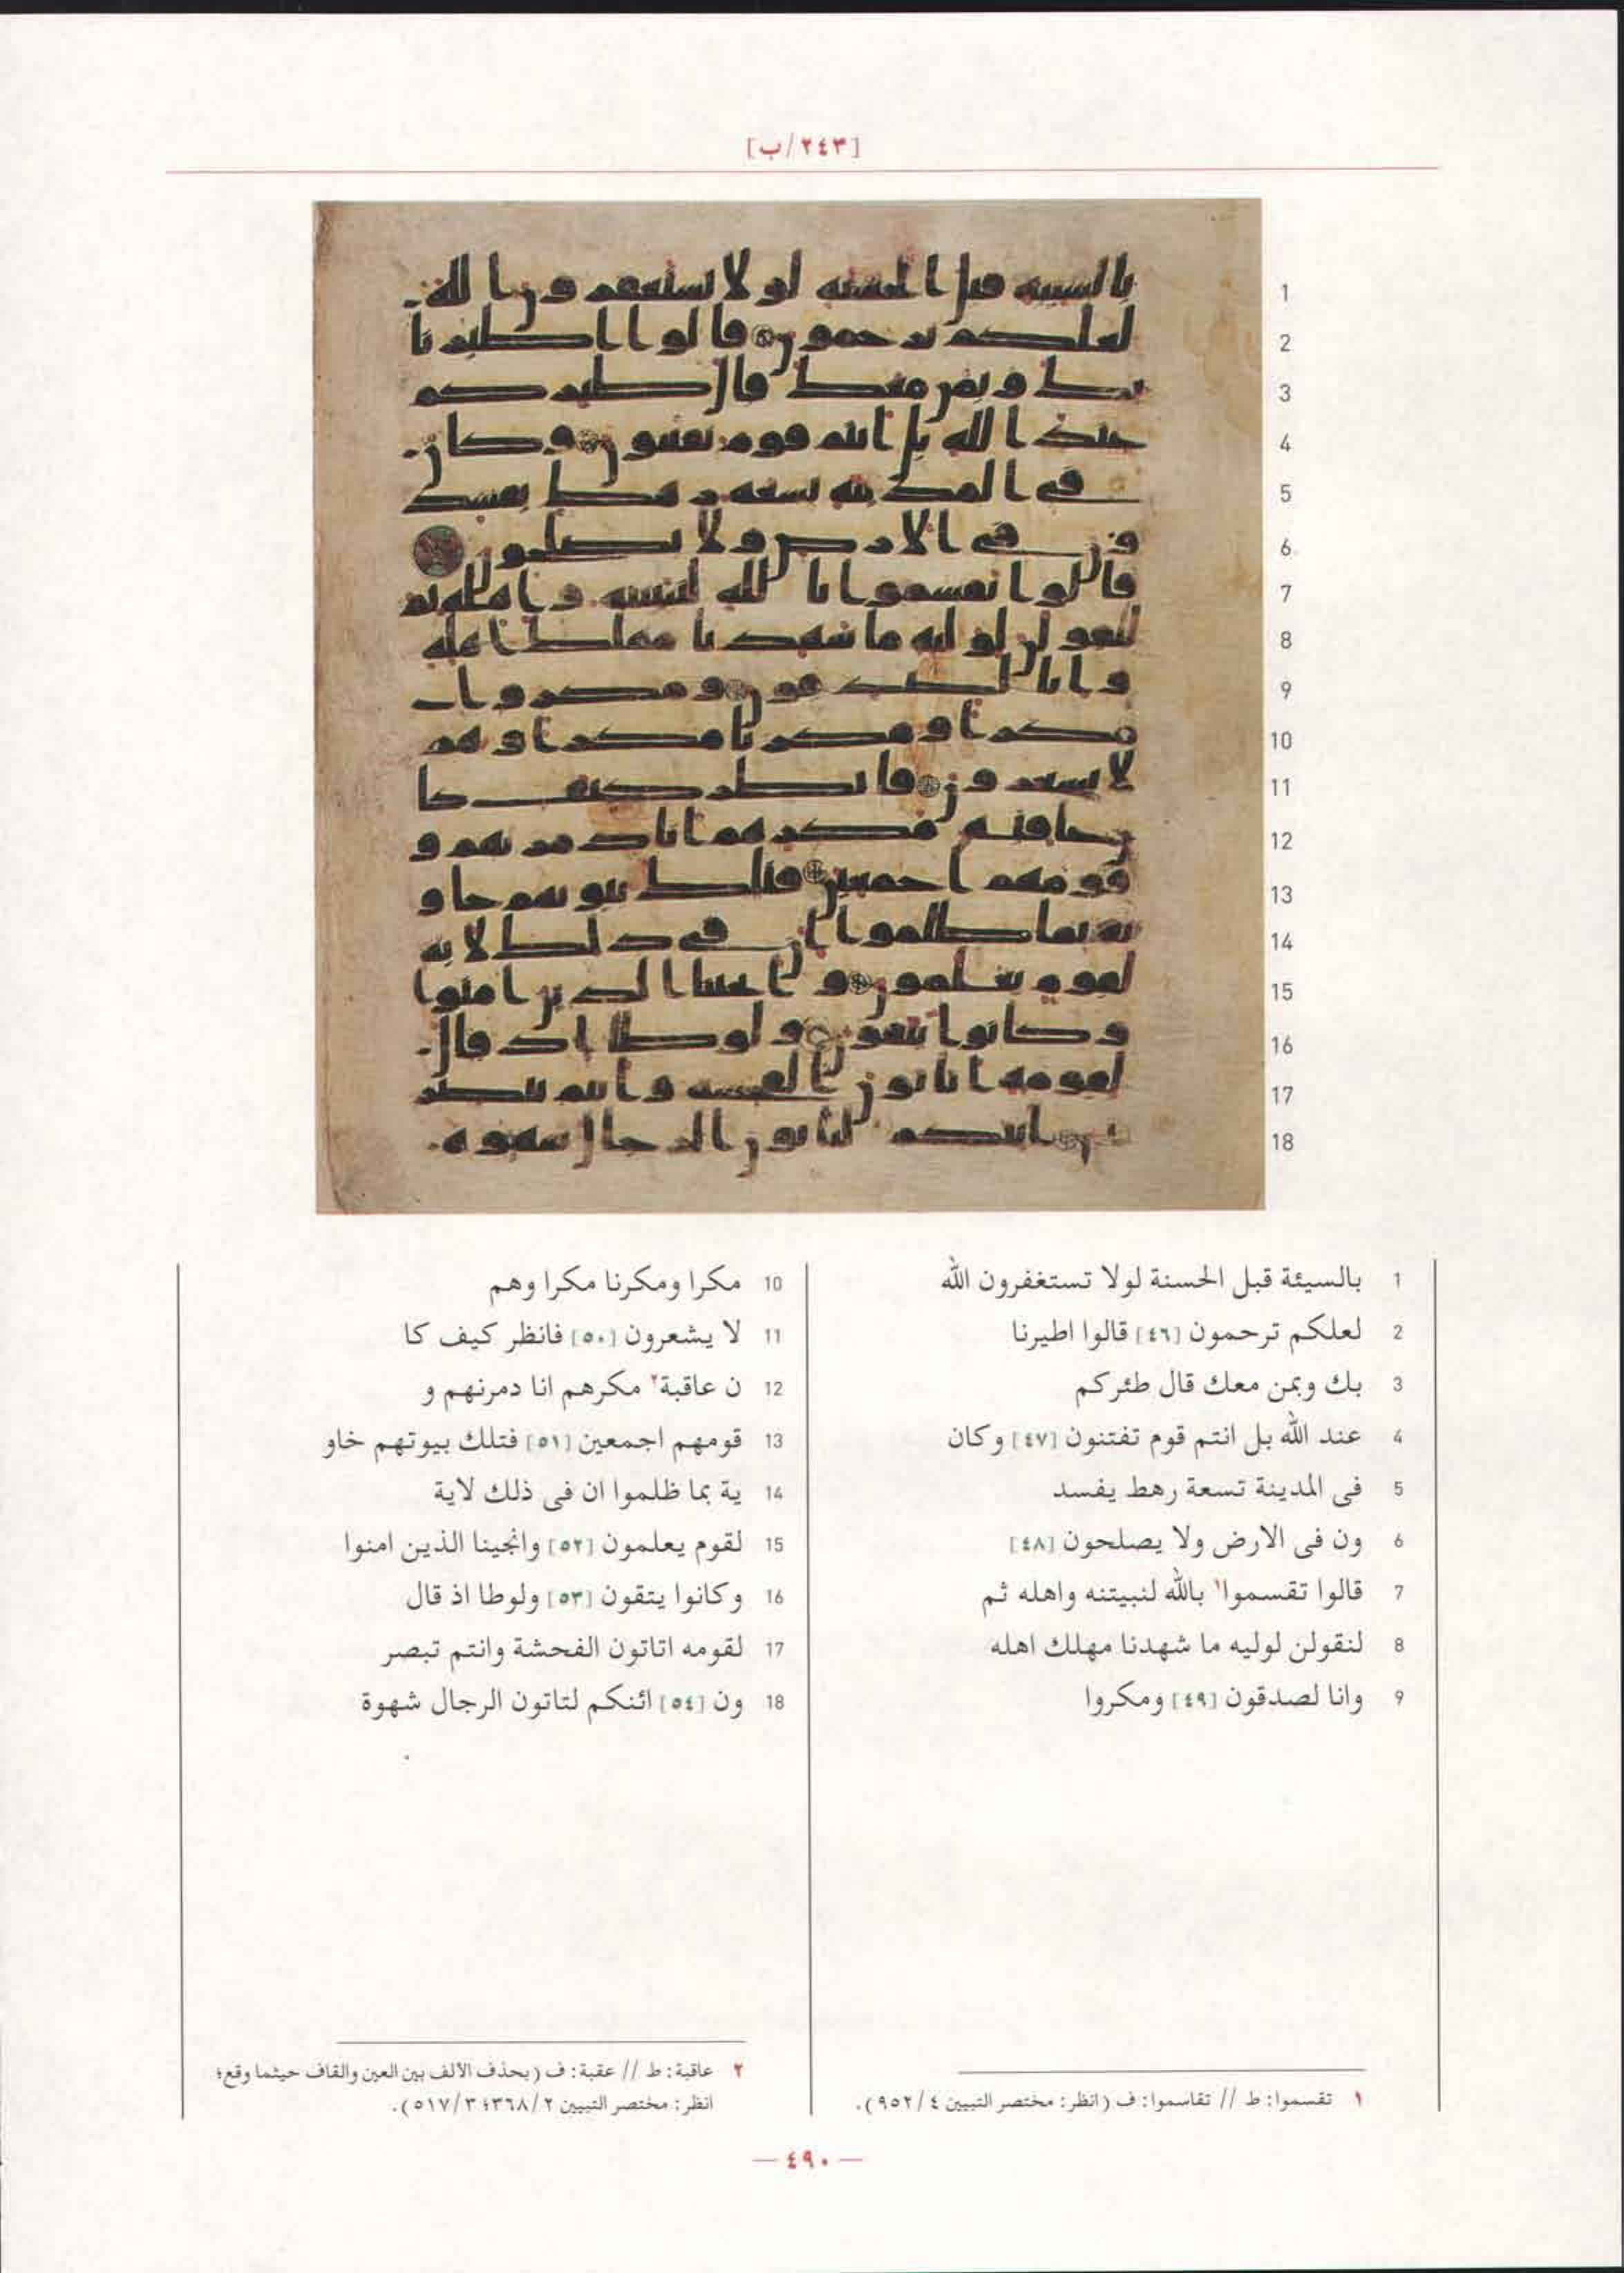 [٢٤٣/ب]
1 بالسيئة قبل الحسنة لولا تستغفرون الله
2 لعلكم ترحمون [٤٦] قالوا اطيرنا
3 بك وبمن معك قال طئركم
4 عند الله بل انتم قوم تفتنون [٤٧] وكان
5 فى المدينة تسعة رهط يفسد
6 ون فى الارض ولا يصلحون [٤٨]
7 قالوا تقسموا١ بالله لنبيتنه واهله ثم
8 لنقولن لوليه ما شهدنا مهلك اهله
9 وانا لصدقون [٤٩] ومكروا
10 مكرا ومكرنا مكرا وهم
11 لا يشعرون [٥٠] فانظر كيف كا
12 ن عاقبة٢ مكرهم انا دمرنهم و
13 قومهم اجمعين [٥١] فتلك بيوتهم خاو
14 ية بما ظلموا ان فى ذلك لاية
15 لقوم يعلمون [٥٢] وانجينا الذين امنوا
16 وكانوا يتقون [٥٣] ولوطا اذ قال
17 لقومه اتاتون الفحشة وانتم تبصر
18 ون [٥٤] ائنكم لتاتون الرجال شهوة
١ تقسموا: ط // تقاسموا: ف (انظر: مختصر التبيين ٤/ ٩٥٢).
٢ عاقبة: ط // عقبة: ف (بحذف الالف بين العين والقاف حيثما وقع؛
انظر: مختصر التبيين ٢/ ٣٦٨؛ ٣/ ٥١٧).
— ٤٩٠ —